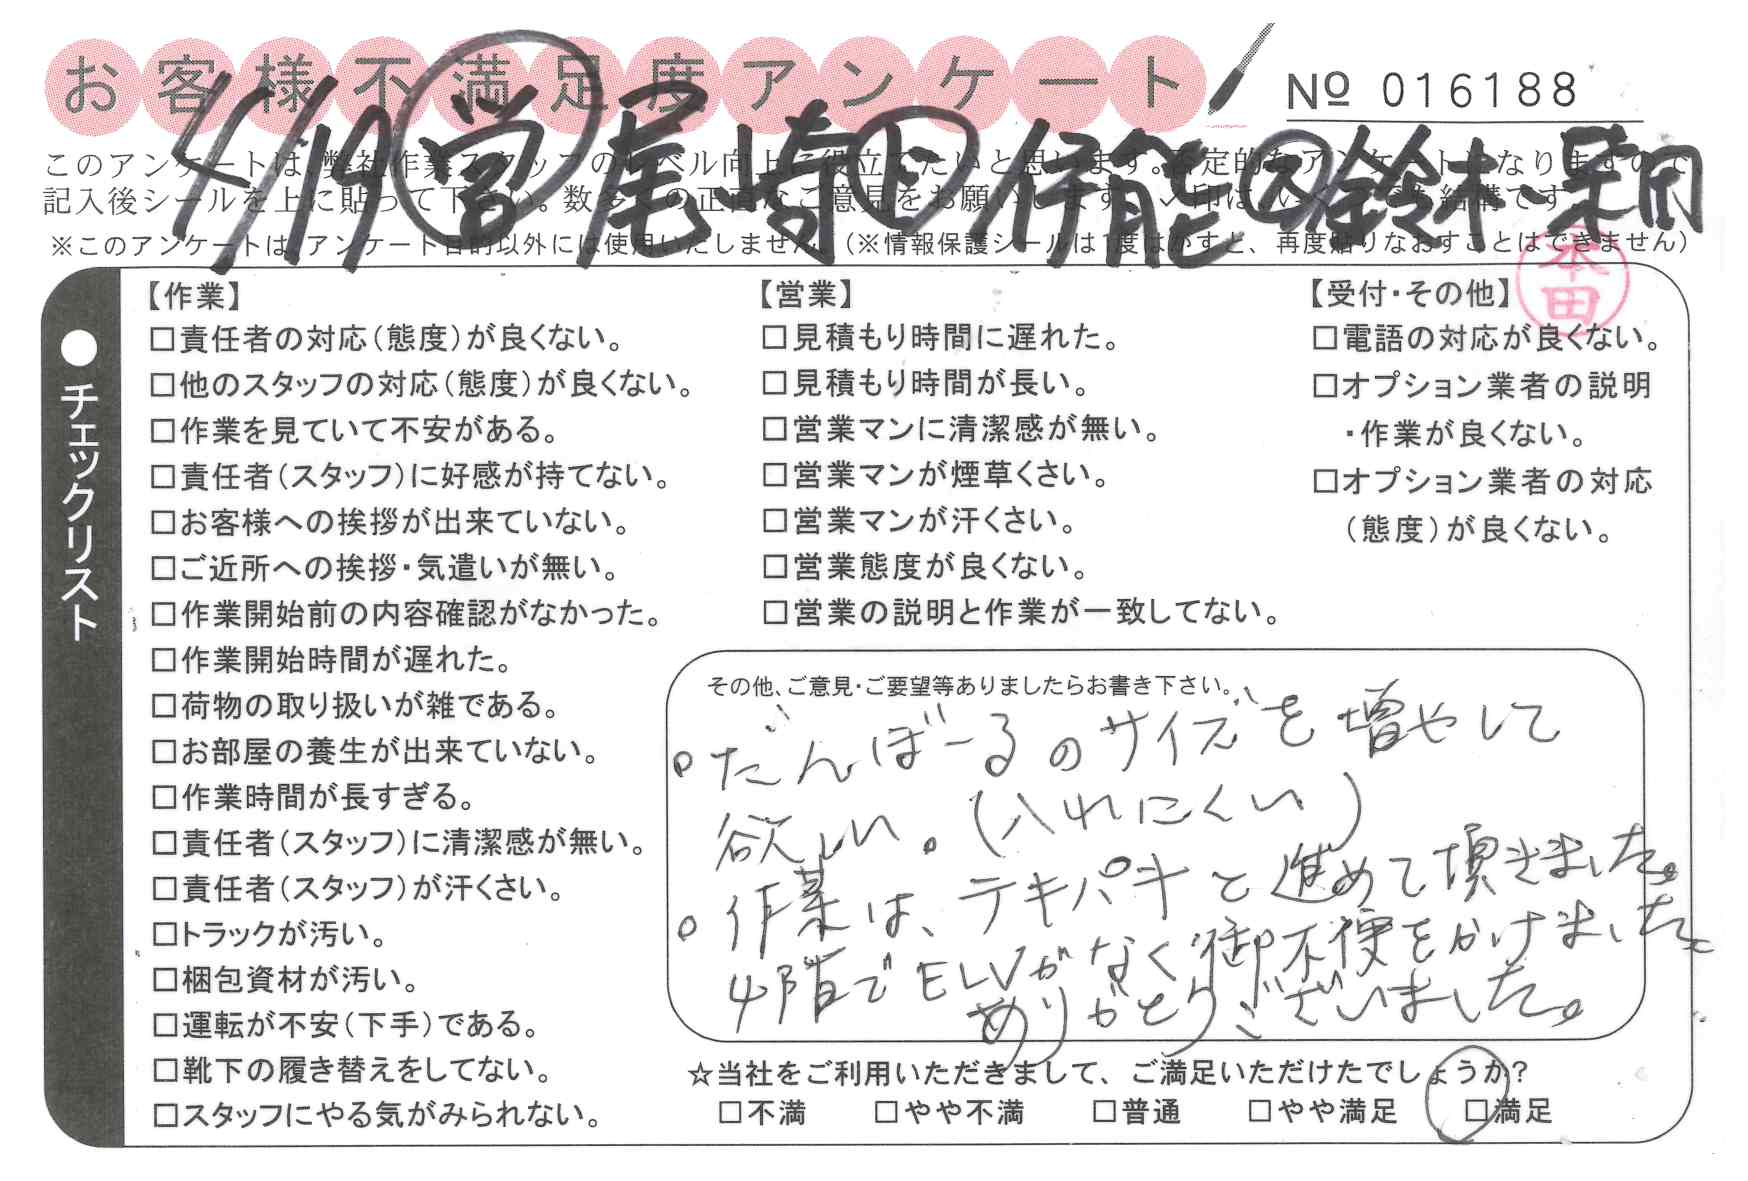 お客様不満足度アンケート
Nº 016188
4/19 営 尾崎 上 伊能 ス 鈴木 柴田
このアンケートは、弊社作業スタッフのレベル向上に役立てたいと思います。否定的なアンケートになりますので、
記入後シールを上に貼って下さい。数多くの正直なご意見をお願いします。✓印は、いくつでも結構です。
※このアンケートは、アンケート目的以外には使用いたしません。（※情報保護シールは1度はがすと、再度貼りなおすことはできません）
本田
●チェックリスト
【作業】
□責任者の対応（態度）が良くない。
□他のスタッフの対応（態度）が良くない。
□作業を見ていて不安がある。
□責任者（スタッフ）に好感が持てない。
□お客様への挨拶が出来ていない。
□ご近所への挨拶・気遣いが無い。
□作業開始前の内容確認がなかった。
□作業開始時間が遅れた。
□荷物の取り扱いが雑である。
□お部屋の養生が出来ていない。
□作業時間が長すぎる。
□責任者（スタッフ）に清潔感が無い。
□責任者（スタッフ）が汗くさい。
□トラックが汚い。
□梱包資材が汚い。
□運転が不安（下手）である。
□靴下の履き替えをしてない。
□スタッフにやる気がみられない。
【営業】
□見積もり時間に遅れた。
□見積もり時間が長い。
□営業マンに清潔感が無い。
□営業マンが煙草くさい。
□営業マンが汗くさい。
□営業態度が良くない。
□営業の説明と作業が一致してない。
【受付・その他】
□電話の対応が良くない。
□オプション業者の説明
・作業が良くない。
□オプション業者の対応
（態度）が良くない。
その他、ご意見・ご要望等ありましたらお書き下さい。
。だんぼーるのサイズを増やして
欲しい。（入れにくい）
。作業は、テキパキと進めて頂きました。
4階でELVがなく御不便をかけました。
ありがとうございました。
☆当社をご利用いただきまして、ご満足いただけたでしょうか？
□不満 □やや不満 □普通 □やや満足 □満足